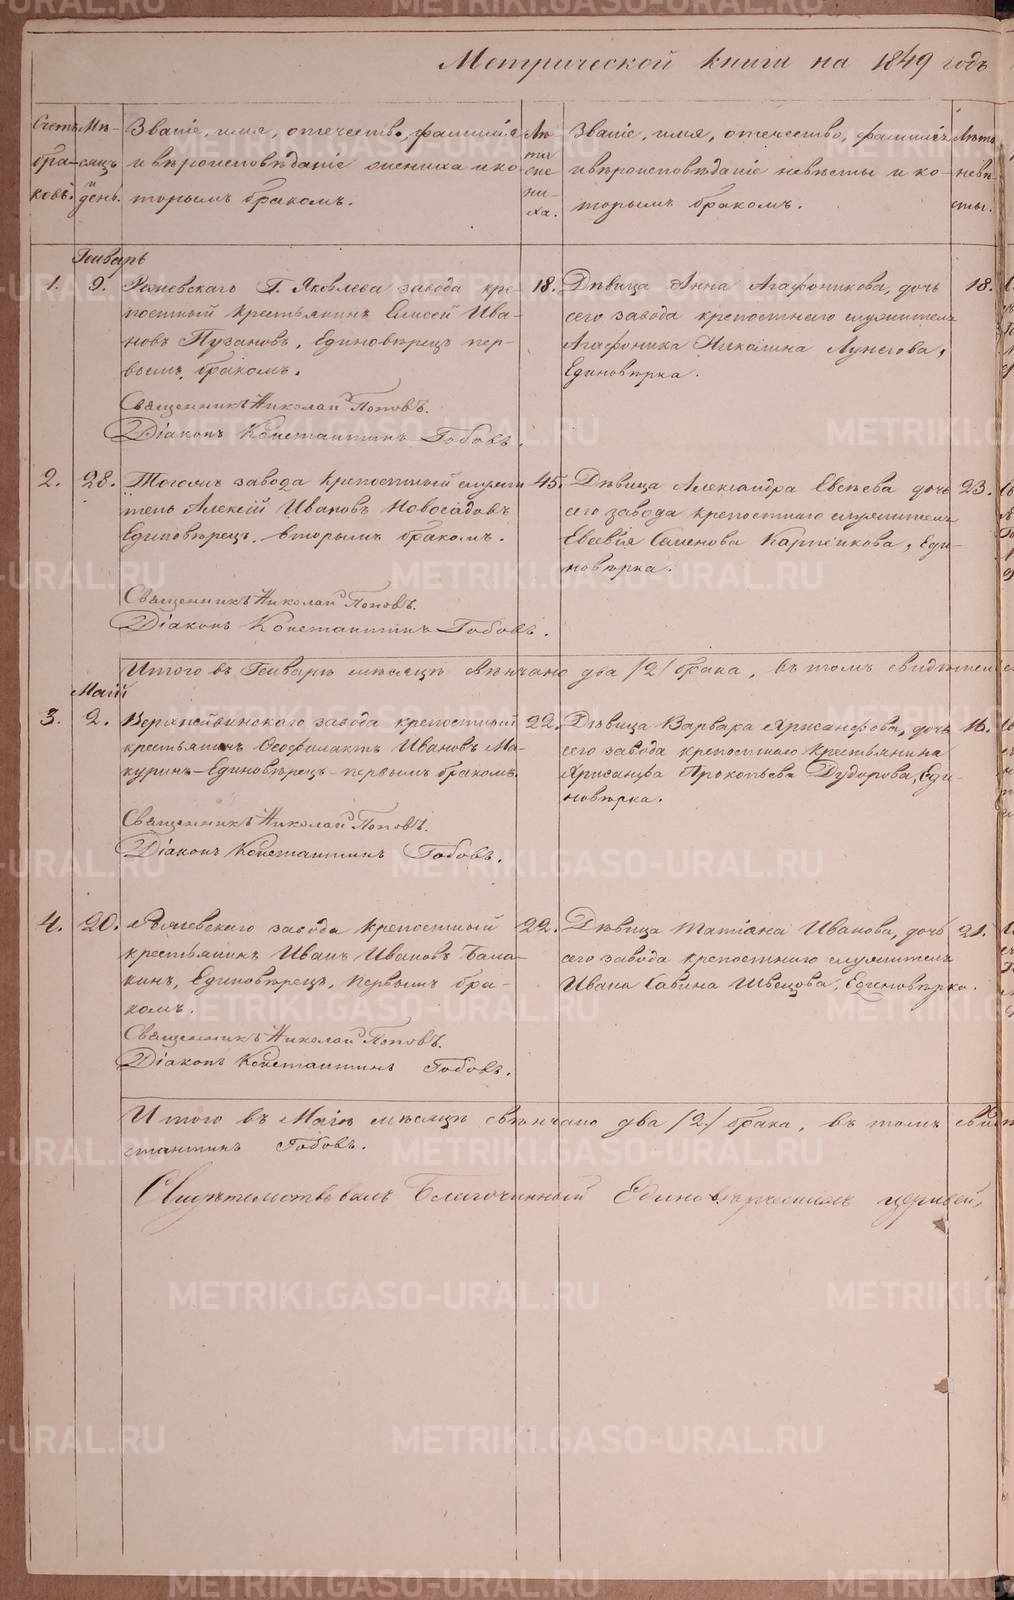 Метрической книги на 1849 годъ
Счетъ бра-ковъ.
Мѣ-сяцъ и день.
Званіе, имя, отечество, фамилія
и вѣроисповѣданіе жениха и ко-
торымъ бракомъ.
Лѣ-та же-ни-ха.
Званіе, имя, отечество, фамилія
и вѣроисповѣданіе невѣсты и ко-
торымъ бракомъ.
Лѣта невѣ-сты.
Генварь
1. 9. Режевскаго Г. Яковлева завода крѣ-
постный крестьянинъ Елисей Ива-
новъ Пузановъ, Единовѣрецъ пер-
вымъ бракомъ.
Священникъ Николай Поповъ.
Діаконъ Константинъ Гобовъ.
18.
Дѣвица Анна Агафоникова, дочь
сего завода крепостнаго служителя
Агафоника Никонина Лунегова,
Единовѣрка.
18.
2. 28. Тогожъ завода крепостный служи
тель Алексій Ивановъ Новосадовъ
Единовѣрецъ. вторымъ бракомъ.
Священникъ Николай Поповъ.
Діаконъ Константинъ Гобовъ.
45.
Дѣвица Александра Евсѣева дочь
сего завода крепостнаго служителя
Евсевія Семенова Карпенкова, Еди-
новѣрка.
23.
Итого въ Генварѣ мѣсяцѣ вѣнчано два /2/ брака, въ томъ свидѣтел
Маій
3. 2. Верхнейвинскаго завода крепостный
крестьянинъ Ѳеофилактъ Ивановъ Ма-
куринъ - Единовѣрецъ - первымъ бракомъ.
Священникъ Николай Поповъ.
Діаконъ Константинъ Гобовъ.
22.
Дѣвица Варвара Хрисанфова, дочь
сего завода крепостнаго крестьянина
Хрисанфа Прокопьева Дудорова, Еди-
новѣрка.
16.
4. 20. Режевскаго завода крепостный
крестьянинъ Иванъ Ивановъ Бала-
кинъ, Единовѣрецъ, первымъ бра-
комъ.
Священникъ Николай Поповъ.
Діаконъ Константинъ Гобовъ.
22.
Дѣвица Татіана Иванова, дочь
сего завода крепостнаго служителя
Ивана Савина Швецова, Единовѣрка.
21.
Итого въ Маіѣ мѣсяцѣ свѣнчано два /2/ брака, въ томъ свидѣ
стантинъ Гобовъ.
Свидѣтельствовалъ Благочинный Единовѣрческихъ церквей,
METRIKI.GASO-URAL.RU